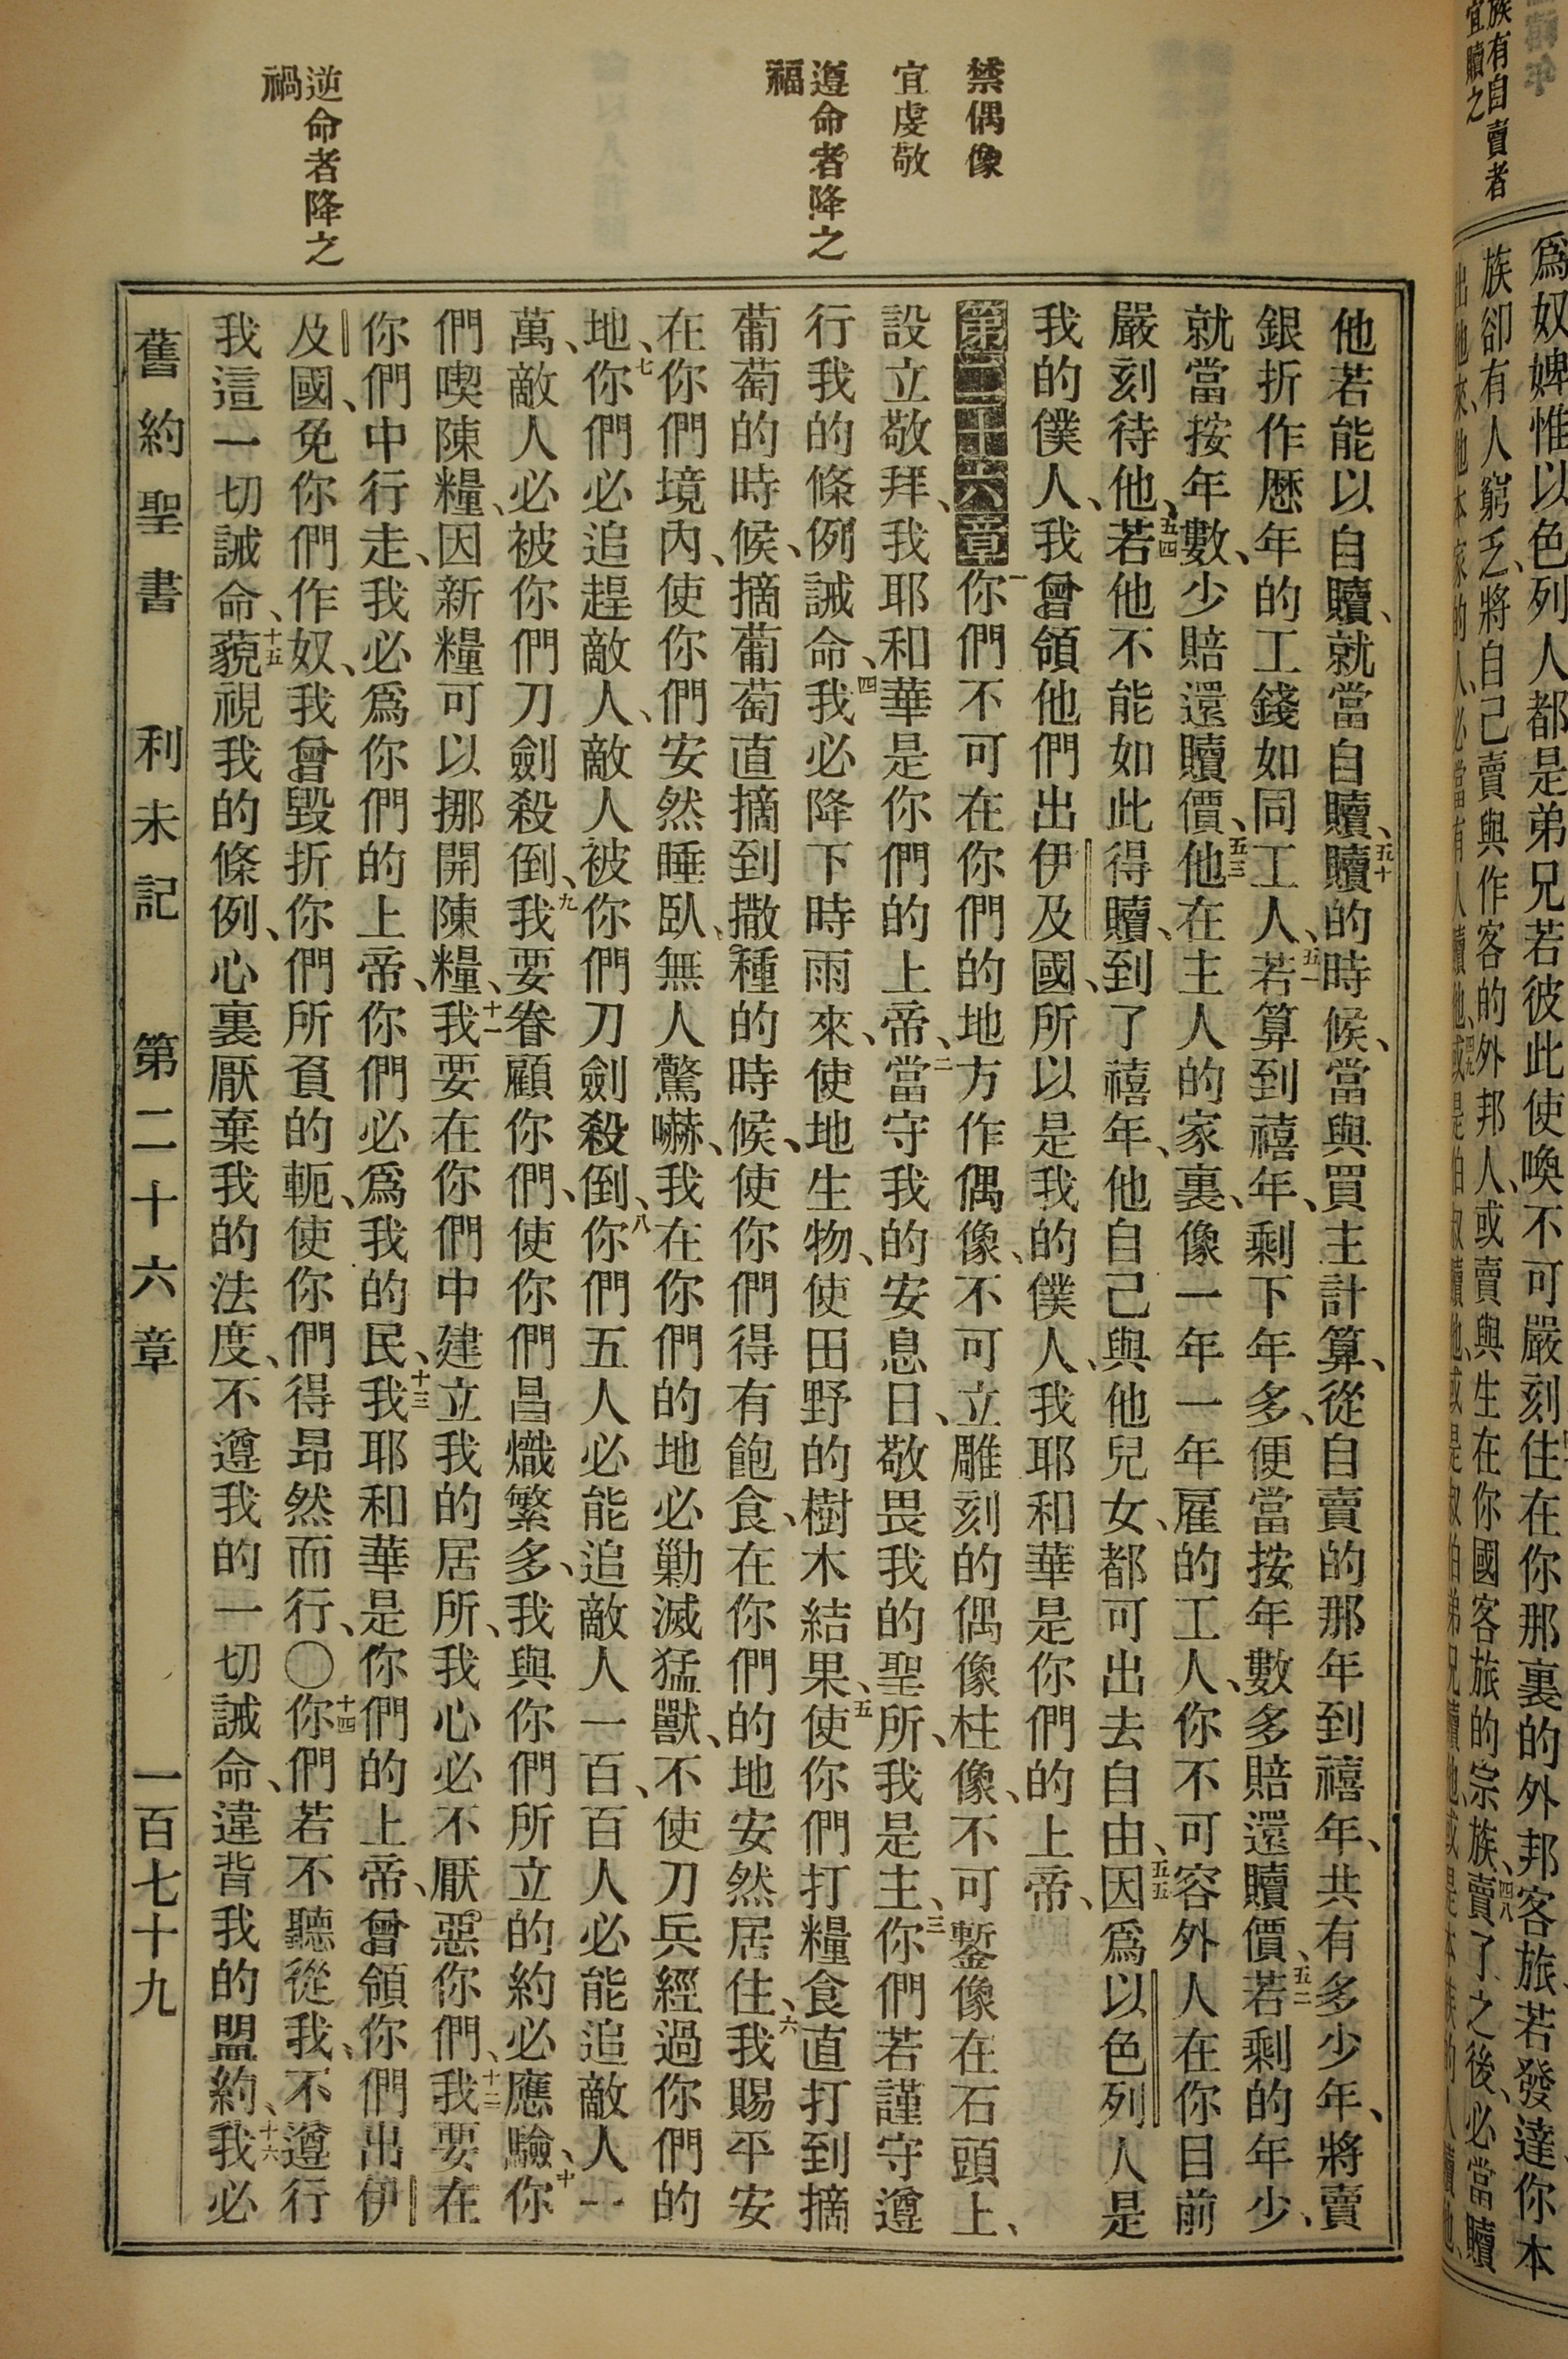 禁偶像
宜虔敬
遵命者降之
福
逆命者降之
禍
他若能以自贖、就當自贖、五十贖的時候、當與買主計算、從自賣的那年到禧年、共有多少年、將賣
銀折作歷年的工錢如同工人、五一若算到禧年、剩下年多、便當按年數多賠還贖價、五二若剩的年少、
就當按年數、少賠還贖價、五三他在主人的家裏、像一年一年雇的工人、你不可容外人在你目前
嚴刻待他、五四若他不能如此得贖、到了禧年、他自己與他兒女、都可出去自由、五五因爲以色列人是
我的僕人、我曾領他們出伊及國、所以是我的僕人、我耶和華是你們的上帝、
第二十六章一你們不可在你們的地方作偶像、不可立雕刻的偶像柱像、不可鏨像在石頭上、
設立敬拜、我耶和華是你們的上帝、二當守我的安息日、敬畏我的聖所、我是主、三你們若謹守遵
行我的條例誡命、四我必降下時雨來、使地生物、使田野的樹木結果、五使你們打糧食直打到摘
葡萄的時候、摘葡萄直摘到撒種的時候、使你們得有飽食、在你們的地安然居住、六我賜平安
在你們境內、使你們安然睡臥、無人驚嚇、我在你們的地必勦滅猛獸、不使刀兵經過你們的
地、七你們必追趕敵人、敵人被你們刀劍殺倒、八你們五人必能追敵人一百、百人必能追敵人一
萬、敵人必被你們刀劍殺倒、九我要眷顧你們、使你們昌熾繁多、我與你們所立的約必應驗、十你
們喫陳糧、因新糧可以挪開陳糧、十一我要在你們中建立我的居所、我心必不厭惡你們、十二我要在
你們中行走、我必爲你們的上帝、你們必爲我的民、十三我耶和華是你們的上帝、曾領你們出伊
及國、免你們作奴、我曾毀折你們所負的軛、使你們得昂然而行、〇十四你們若不聽從我、不遵行
我這一切誡命、十五藐視我的條例、心裏厭棄我的法度、不遵我的一切誡命、違背我的盟約、十六我必
舊約聖書 利未記 第二十六章 一百七十九
族有自賣者
宜贖之
爲奴婢惟以色列人都是弟兄若彼此使喚不可嚴刻住在你那裏的外邦客旅若發達你本
族卻有人窮乏、將自己賣與作客的外邦人、或賣與生在你國客旅的宗族、四八賣了之後、必當贖